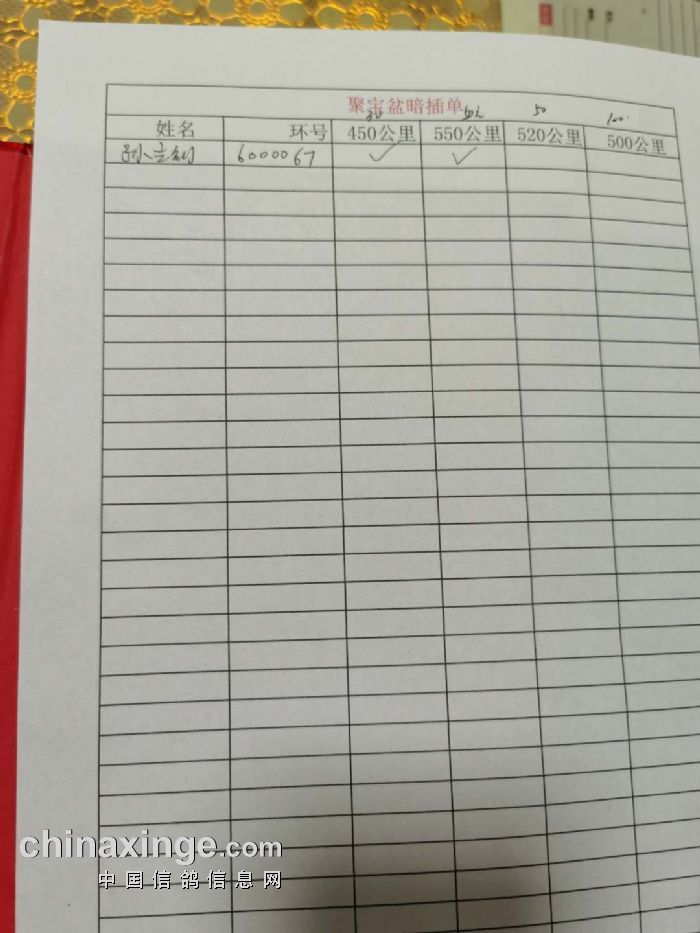 聚宝盆暗插单
50 100
姓名 环号 450公里 550公里 520公里 500公里
6000067 ✓ ✓
chinaxinge.com
中国信鸽信息网